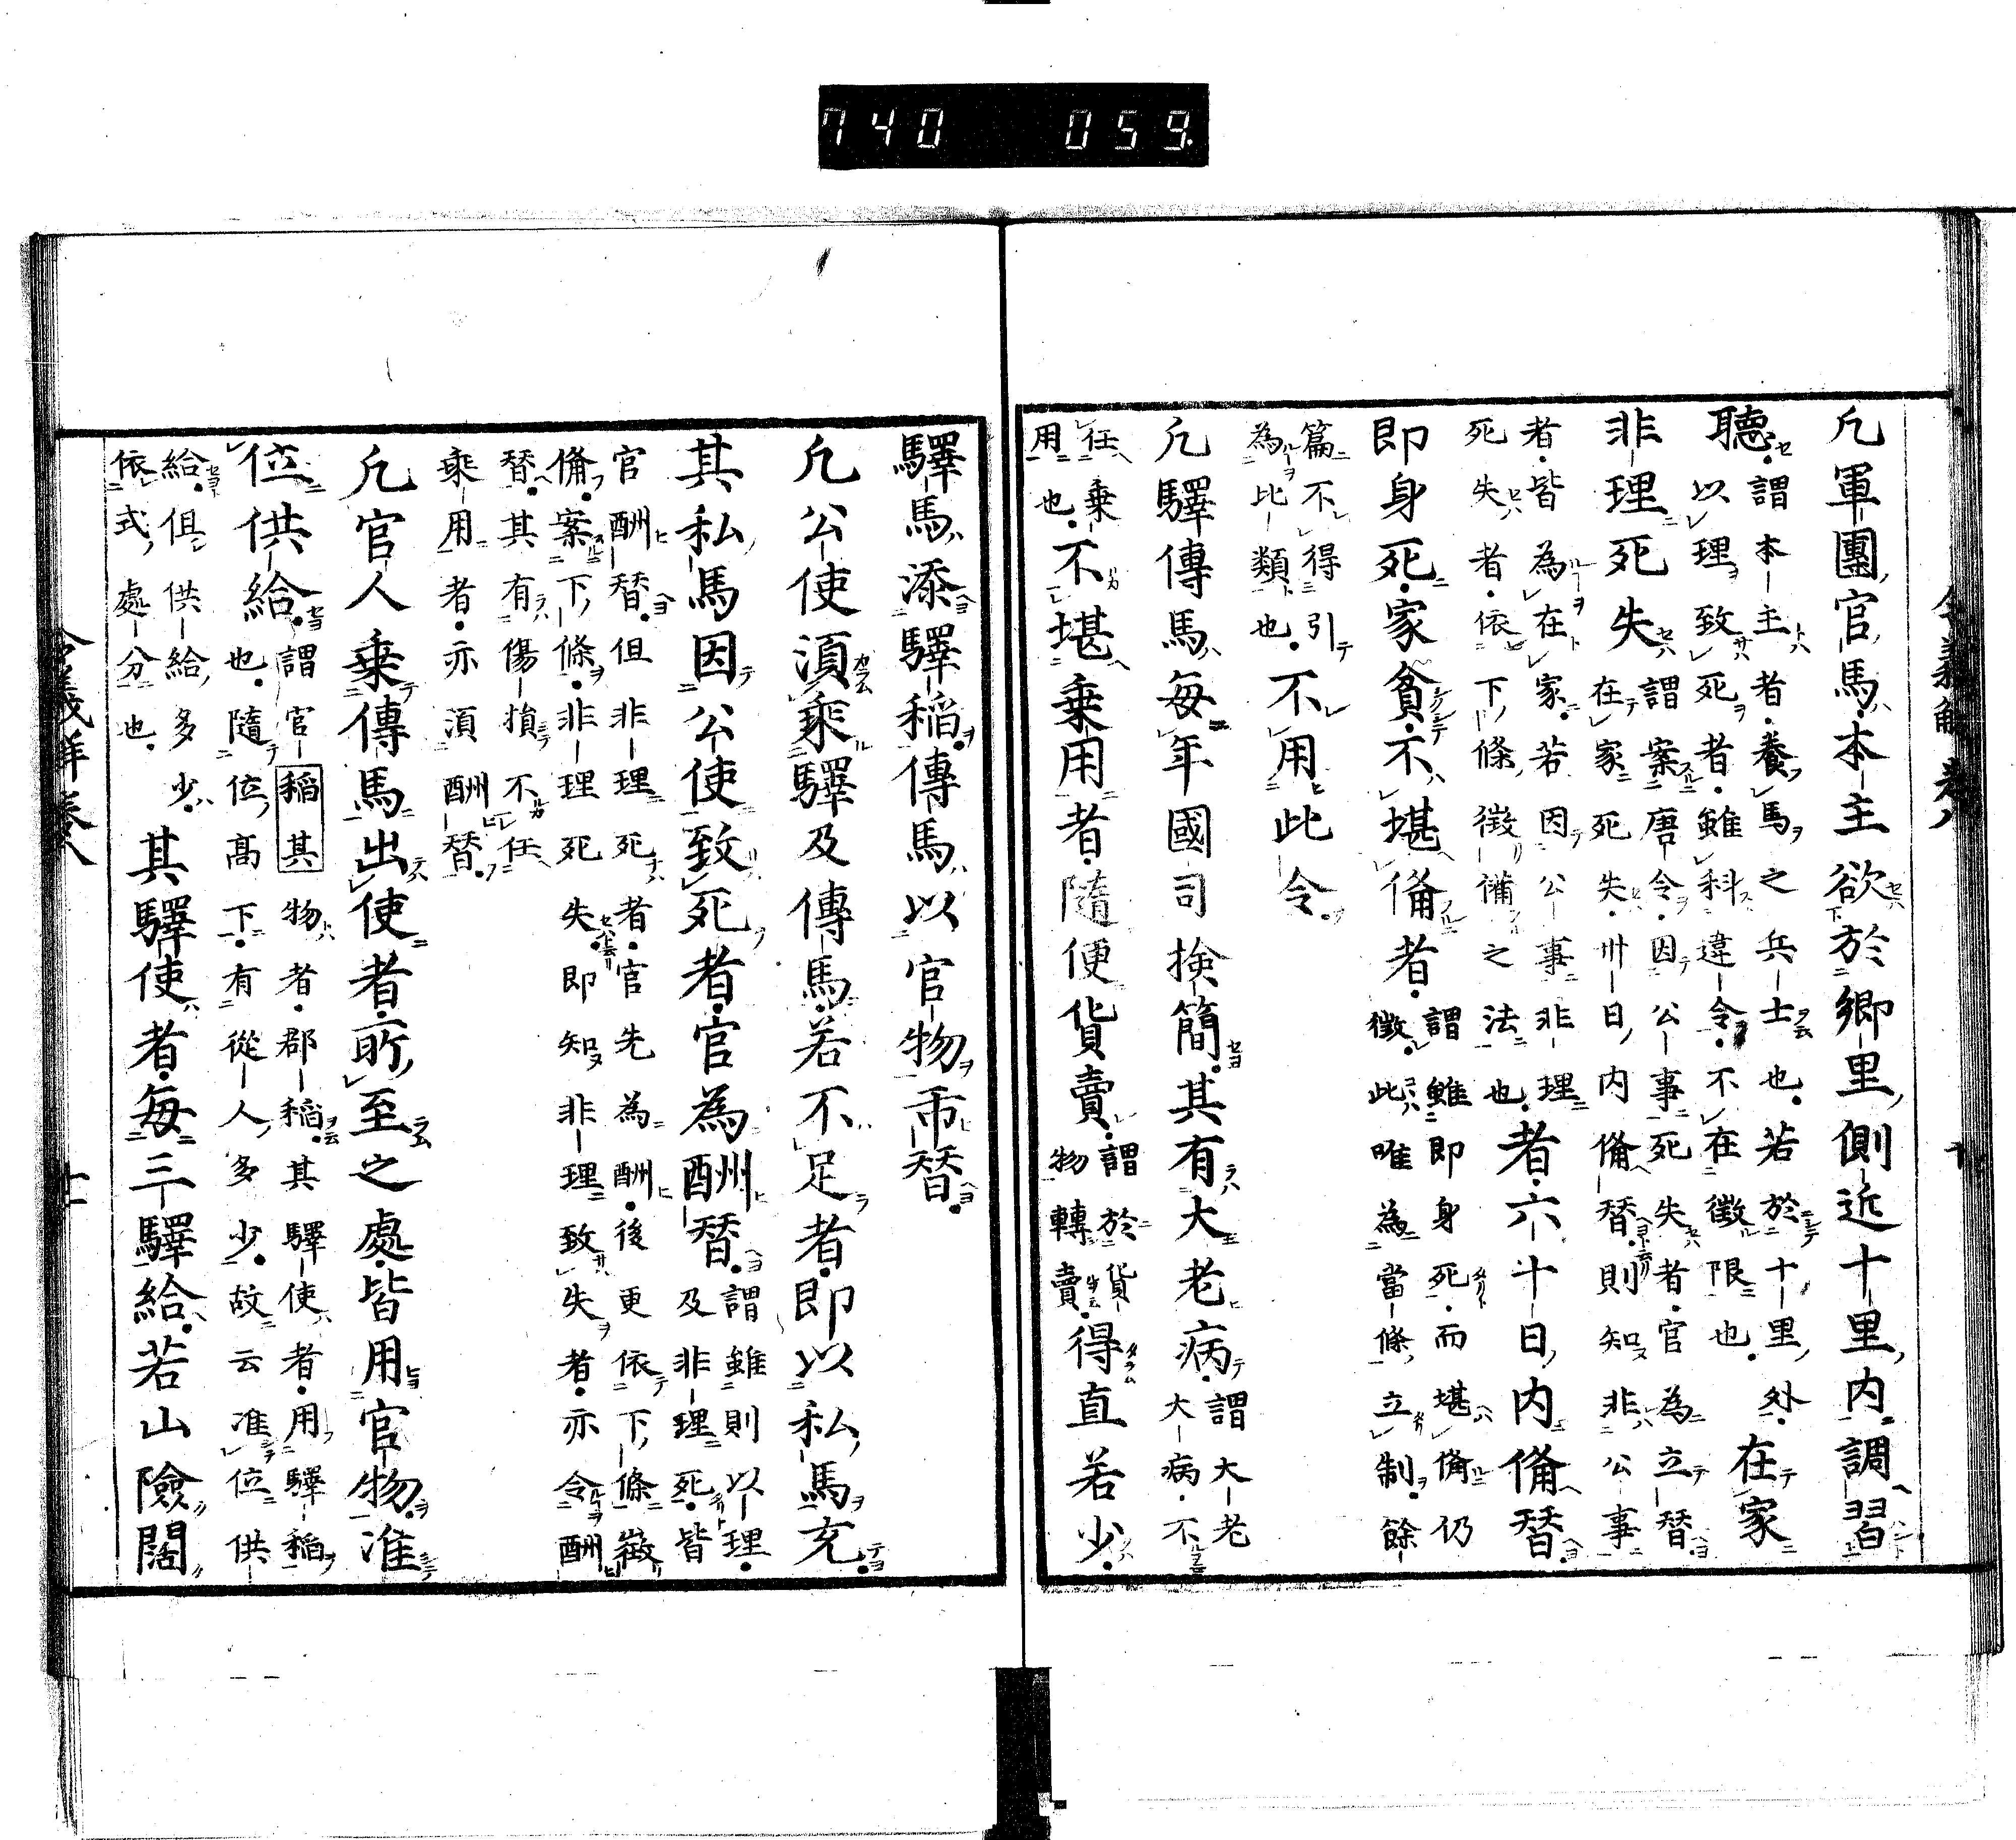 740 059.
凡軍團官馬本主欲於郷里側近十里内調習
聽謂本主者養馬之兵士也若於十里外在家
以理致死者雖科違令不在徴限也
非理死失謂案唐令因公事死失者官為立替
在家死失卅日内備替則知非公事
者皆為在家若因公事非理
死失者依下條徴備之法也者六十日内備替
即身死家貧不堪備者謂雖即身死而堪備仍
徴此唯為當條立制餘
篇不得引
為比類也不用此令
凡驛傳馬毎年國司検簡其有大老病謂大老
大病不
任乗
用也不堪乗用者隨便貨賣謂於貨
物轉賣得直若少
驛馬添驛稲傳馬以官物市替
凡公使湏乘驛及傳馬若不足者即以私馬充
其私馬因公使致死者官為酬替謂雖則以理
及非理死皆
官酬替但非理死者官先為酬後更依下條徴
備案下條非理死失即知非理致失者亦令酬
替其有傷損不任
乗用者亦湏酬替
凡官人乗傳馬出使者所至之處皆用官物准
位供給謂官稲其物者郡稲其驛使者用驛稲
也隨位髙下有從人多少故云准位供
給俱供給多少
依式處分也其驛使者毎三驛給若山險闊